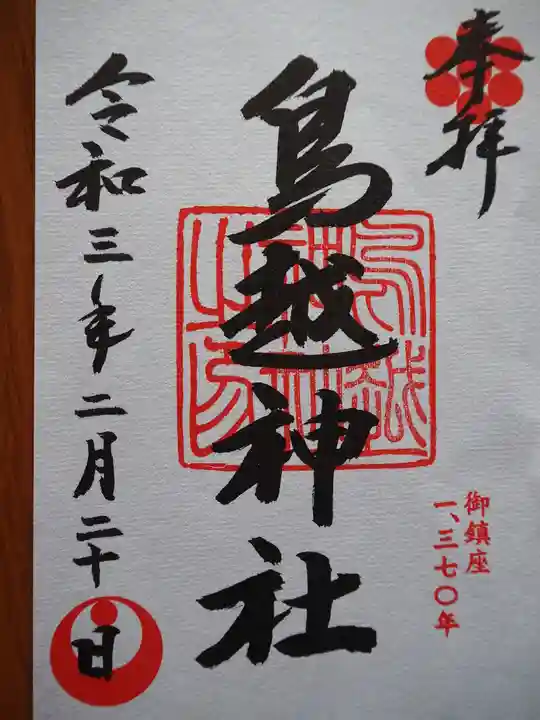 奉拝
御鎮座
一、三七〇年
鳥越神社
鳥越神社之印
令和三年二月二十日